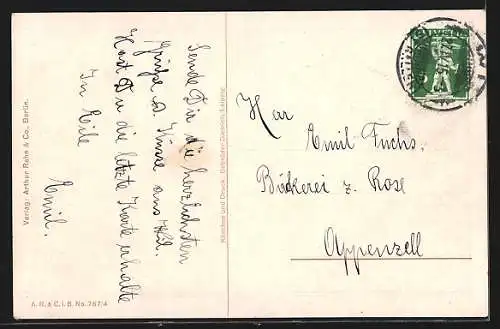 Sende Dir die herzlichsten
Grüße u. Küsse aus
Hast Du die letzte Karte erhalten
In Eile
Emil.
Herr Emil Fuchs,
Bäckerei z. Rose
Appenzell
HELVETIA
Verlag: Arthur Rehn & Co., Berlin.
A. R. & C. i. B. No. 767/4
Klischee und Druck.